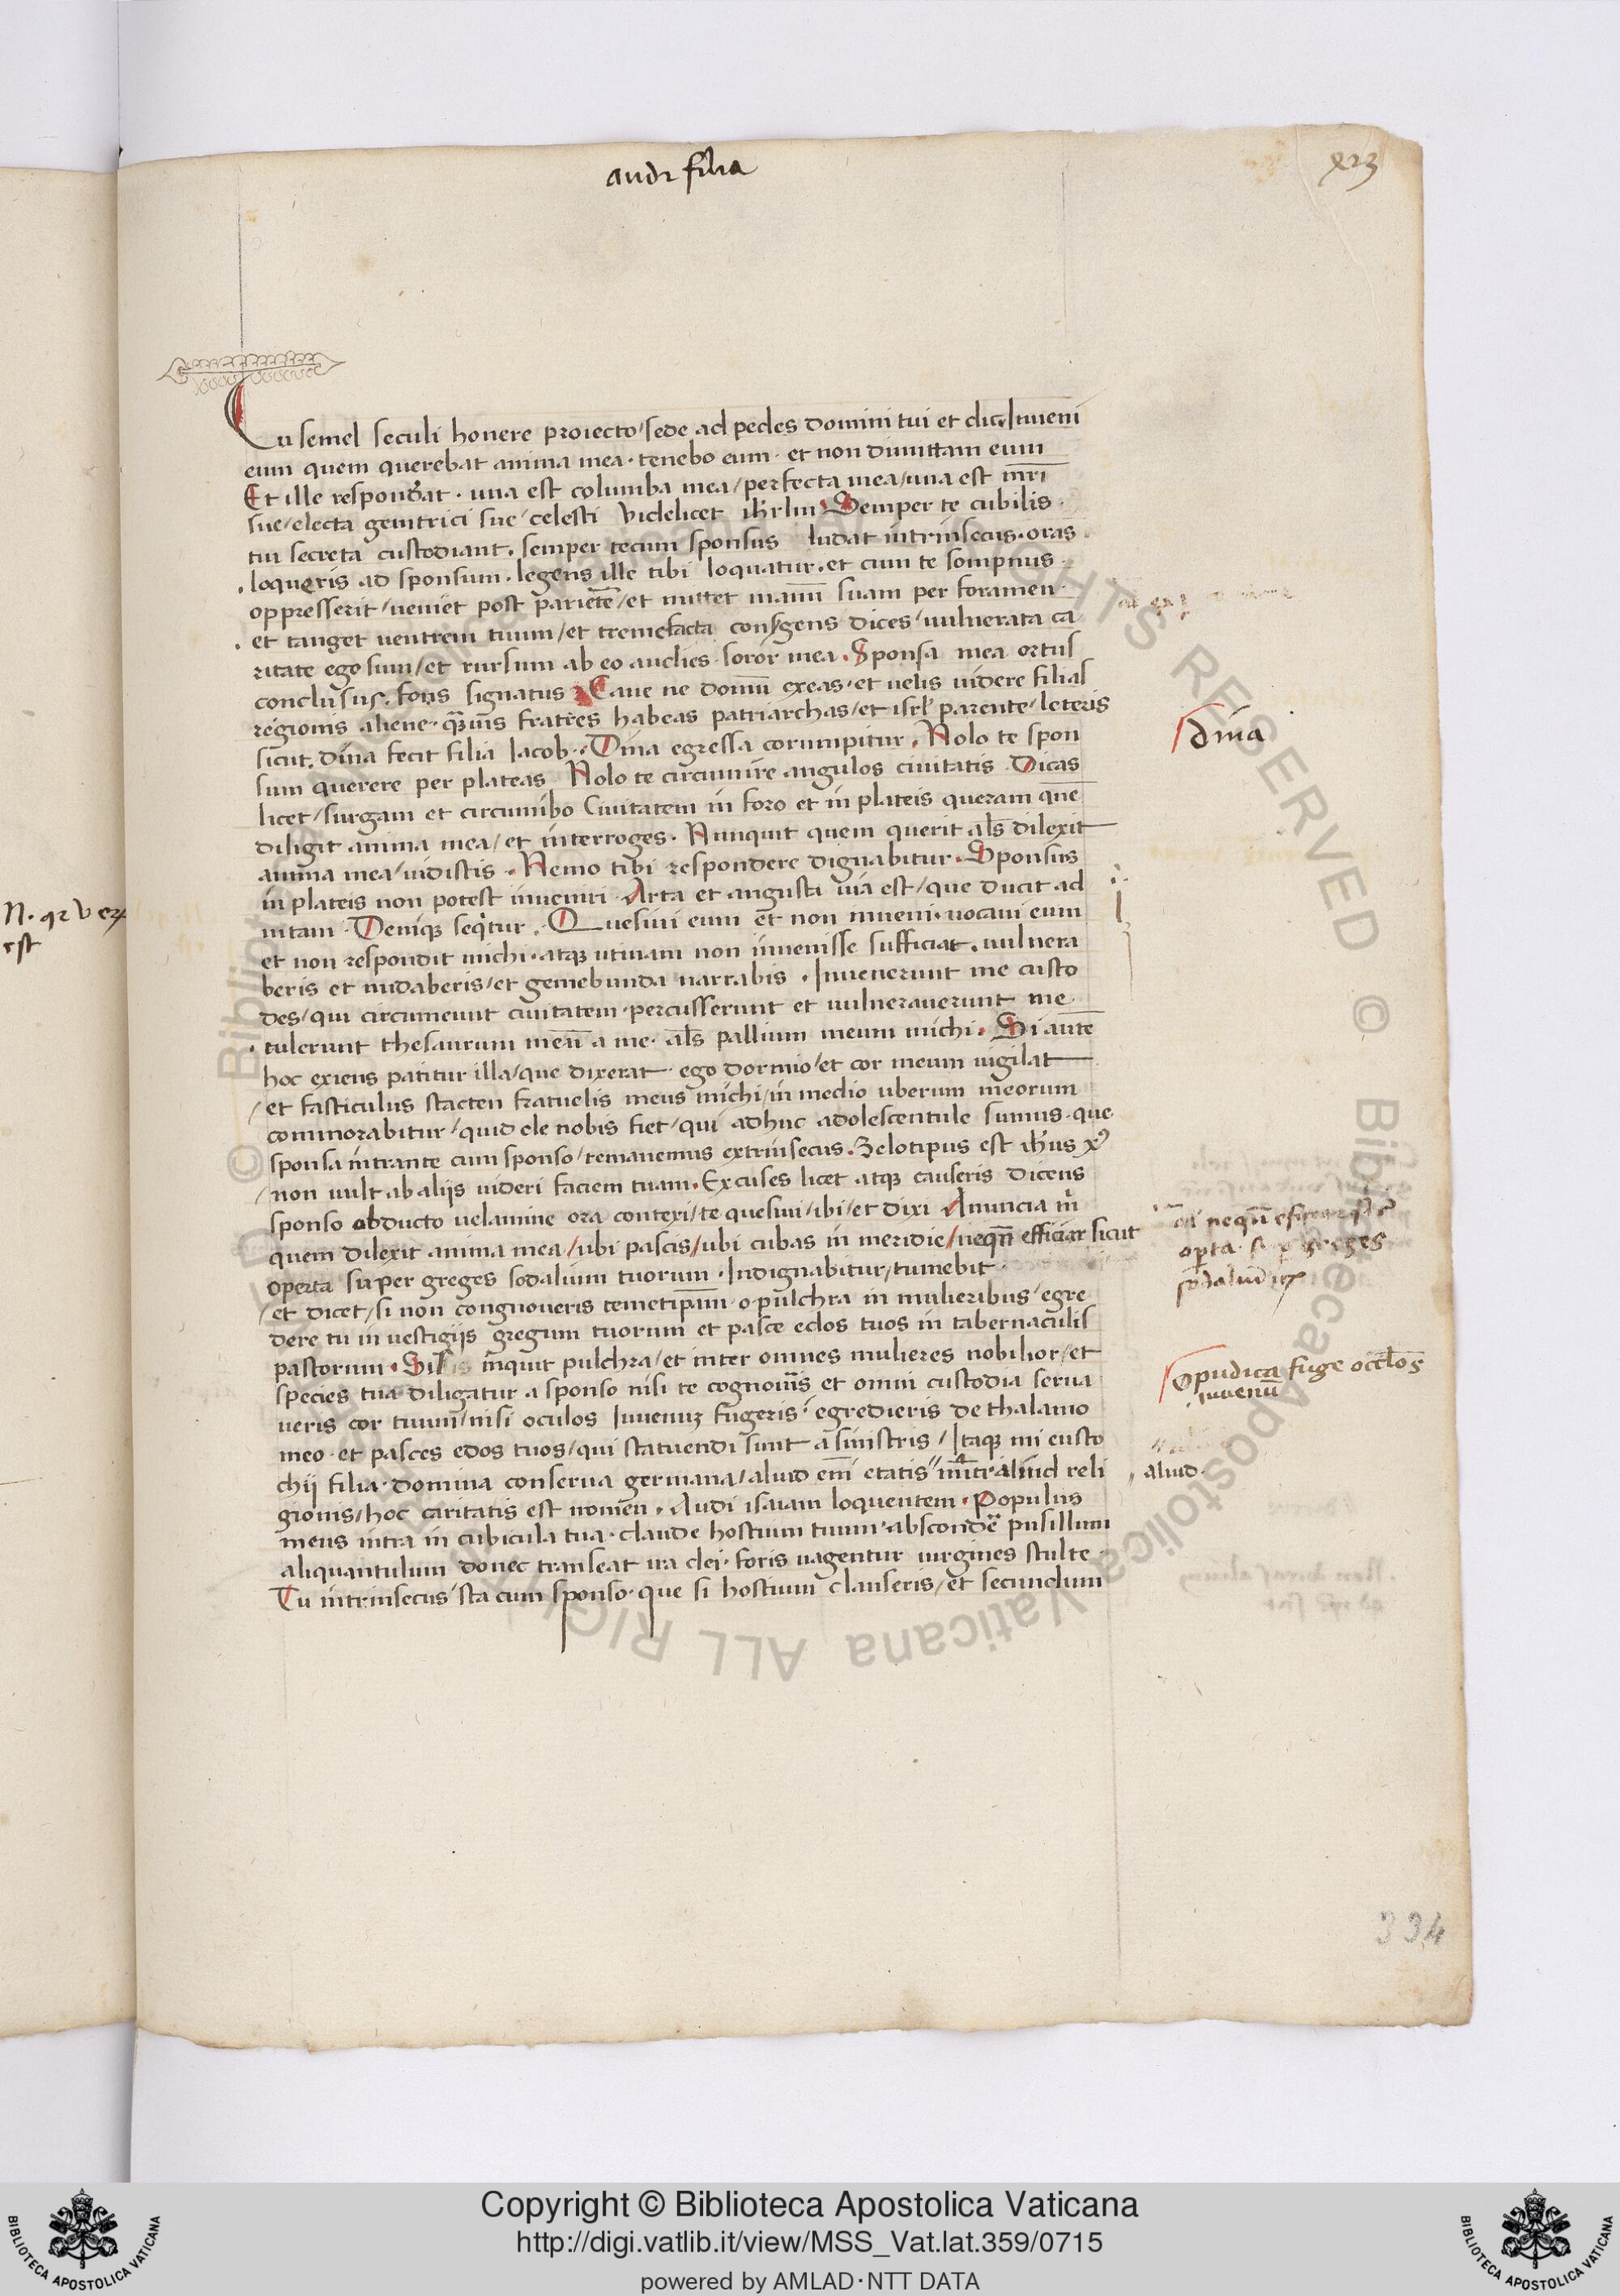 audi filia
Tu semel seculi honere proiecto/sede ad pedes domini tui et dic/Inueni
eum quem querebat anima mea · tenebo eum · et non dimittam eum
Et ille respondeat · una est columba mea/perfecta mea/una est mr̄i
sue/electa genitrici sue/celesti videlicet ihrlm Semper te cubilis ·
tui secreta custodiant · semper tecum sponsus ludat intrinsecus · oras
· loqueris ad sponsum · legens ille tibi loquatur · et cum te sompnus ·
oppresserit/ueniet post parietē/et mittet manū suam per foramen ·
· et tanget uentrem tuum/et tremefacta consurgens dices/uulnerata ca
ritate ego sum/et rursum ab eo audies · soror mea · Sponsa mea ortus
conclusus · fons signatus Caue ne domū exeas · et uelis uidere filias
regionis aliene · quīs fratres habeas patriarchas/et isrl parente/leteris
sicut dina fecit filia Iacob · Dina egressa corumpitur · Nolo te spon
sum querere per plateas Nolo te circumire angulos ciuitatis Dicas
licet/surgam et circumibo Ciuitatem in foro et in plateis queram que
diligit anima mea/et interroges · Nunquit quem querit al̄s dilexit
anima mea/uidistis · Nemo tibi respondere dignabitur · Sponsus
in plateis non potest inueniri Arta et angusta uia est/que ducit ad
uitam · Deniqz seqitur · Quesiui eum et non inueni · uocaui eum
et non respondit michi · atqz utinam non inuenisse sufficiat · uulnera
beris et nudaberis/et gemebunda narrabis · Inuenerunt me custo
des/qui circumeunt ciuitatem · percusserunt et uulnerauerunt me
· tulerunt thesaurum meū a me · al̄s pallium meum michi · Si autē
hoc exiens patitur illa/que dixerat · ego dormio/et cor meum uigilat
/et fasticulus stacten fratuelis meus michi/in medio uberum meorum
commorabitur/quid ele nobis fiet/qui adhuc adolescentule sumus · que
sponsa intrante cum sponso/remanemus extrinsecus · Zelotipus est ih̄us x̄
/non uult ab aliis uideri faciem tuam · Excuses licet atqz causeris dicens
sponso obducto uelamine ora contexi/te quesiui/ibi/et dixi Anuncia m̄
quem dilexit anima mea/ubi pascis/ubi cubas in meridie/neqn̄ efficiar sicut
operta super greges sodalium tuorum · Indignabitur/tumebit
/et dicet/si non congnoueris temetipsam · o pulchra in mulieribus/egre
dere tu in vestigijs gregum tuorum et pasce edos tuos in tabernaculis
pastorum · Sis inquit pulchra/et inter omnes mulieres nobilior/et
species tua diligatur a sponso nisi te cognouīs et omni custodia serua
ueris cor tuum/nisi oculos Iuuenuz fugeris/egredieris de thalamo
meo · et pasces edos tuos/qui statuendi sunt a sinistris/Itaqz mi eusto
chij filia · domina conserua germana/aliud em̄ etatis m̄tr aliud reli
gionis/hoc caritatis est nomen · Audi isaiam loquentem · Populus
meus intra in cubicula tua · claude hostium tuum · abscondē pusillum
aliquantulum donec transeat ira dei · foris uagentur uirgines stulte ·
Tu intrinsecus sta cum sponso · que si hostium clauseris/et secundum
N. qr ver
est
dina
neqn̄ efficiar
opta greges
sodaliū
O pudica fuge occlos
iuuenū
aliud
334
BIBLIOTECA APOSTOLICA VATICANA
Copyright © Biblioteca Apostolica Vaticana
http://digi.vatlib.it/view/MSS_Vat.lat.359/0715
powered by AMLAD·NTT DATA
BIBLIOTECA APOSTOLICA VATICANA
© Biblioteca Apostolica Vaticana ALL RIGHTS RESERVED